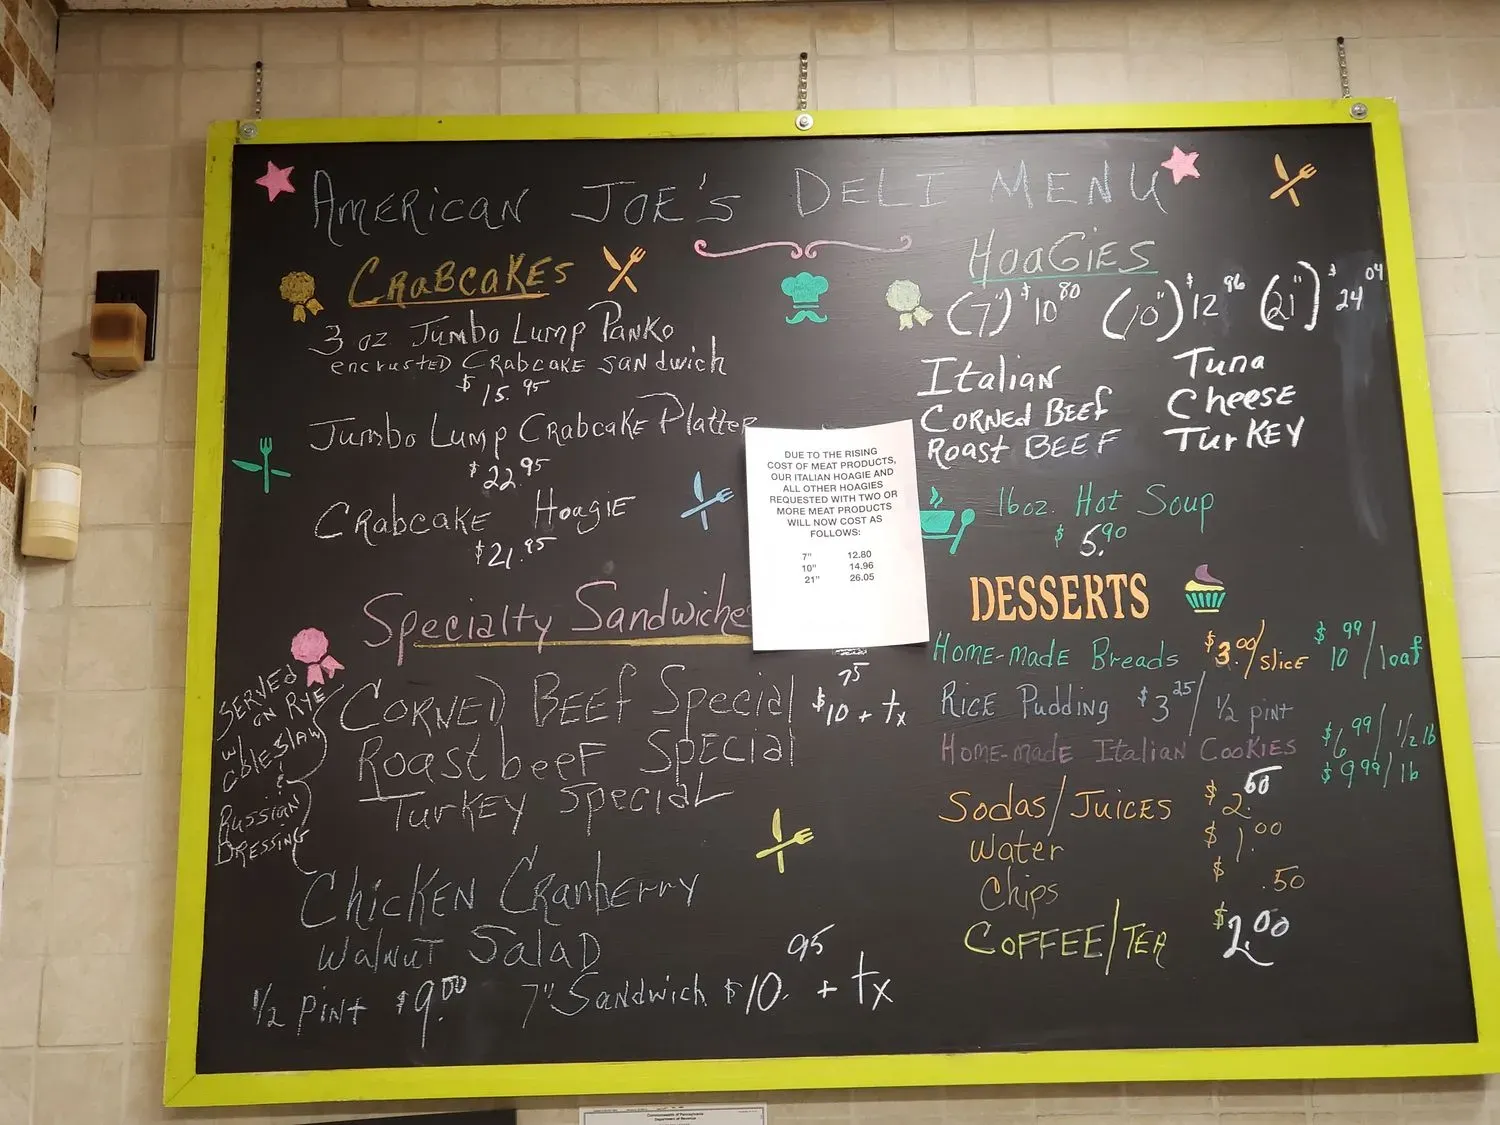 AMERICAN JOE'S DELI MENU
CRABCAKES
3 oz Jumbo Lump Panko
encrusted Crabcake sandwich
$15.95
Jumbo Lump Crabcake Platter
$22.95
Crabcake Hoagie
$21.95
Specialty Sandwiche
SERVED
ON RYE
w/
coleslaw
&
Russian
Dressing
Corned Beef Special
$10.75 + tx
Roast beef Special
Turkey Special
Chicken Cranberry
Walnut Salad
1/2 pint $9.00 7" Sandwich $10.95 + tx
DUE TO THE RISING
COST OF MEAT PRODUCTS,
OUR ITALIAN HOAGIE AND
ALL OTHER HOAGIES
REQUESTED WITH TWO OR
MORE MEAT PRODUCTS
WILL NOW COST AS
FOLLOWS:
7" 12.80
10" 14.96
21" 26.05
HOAGIES
(7") $10.80 (10") $12.96 (21") $24.04
Italian Tuna
Corned Beef Cheese
Roast Beef Turkey
16oz. Hot Soup
$5.90
DESSERTS
Home-made Breads $3.00/slice $10.99/loaf
Rice Pudding $3.25/ 1/2 pint
Home-made Italian Cookies $6.99/ 1/2 lb
$9.99/lb
Sodas/Juices $2.50
Water $1.00
Chips $.50
COFFEE/TEA $2.00
Commonwealth of Pennsylvania
Department of Revenue